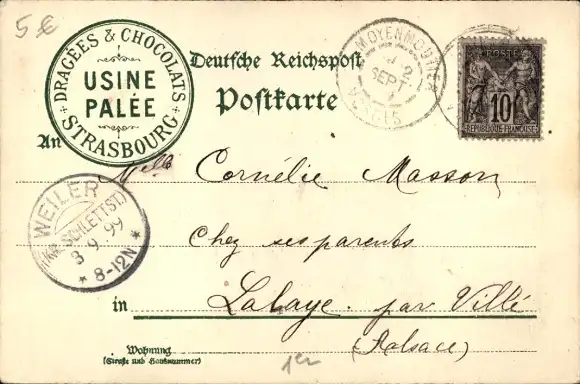 5 €
DRAGÉES & CHOCOLATS
USINE
PALÉE
STRASBOURG
Deutsche Reichspost
Postkarte
MOYENMOUTIER
2
SEPT
VOSGES
POSTE
10
REPUBLIQUE FRANÇAISE
An Melle Cornélie Masson
WEILER
(KR. SCHLETTST)
3.9.99
* 8-12N *
Chez ses parents
in Lalaye. par Villé
(Alsace)
Wohnung
(Straße und Hausnummer)